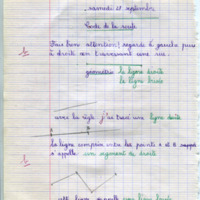 samedi 21 septembre
Code de la route
Fais bien attention! regarde à gauche puis
à droite en traversant une rue.
géométrie la ligne droite
la ligne brisée
avec la règle j'ai tracé une ligne droite
A B
la ligne comprise entre les points A et B
s'appelle un segment de droite
cette ligne s'appelle une ligne brisée